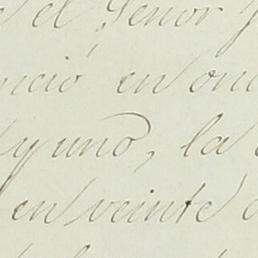 el Señor
nició en on
y uno, la
en veinte